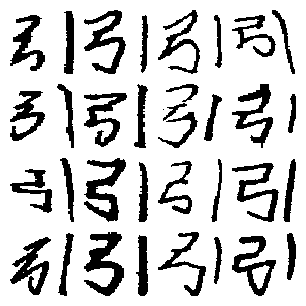 引引引引
引引引引
引引引引
引引引引